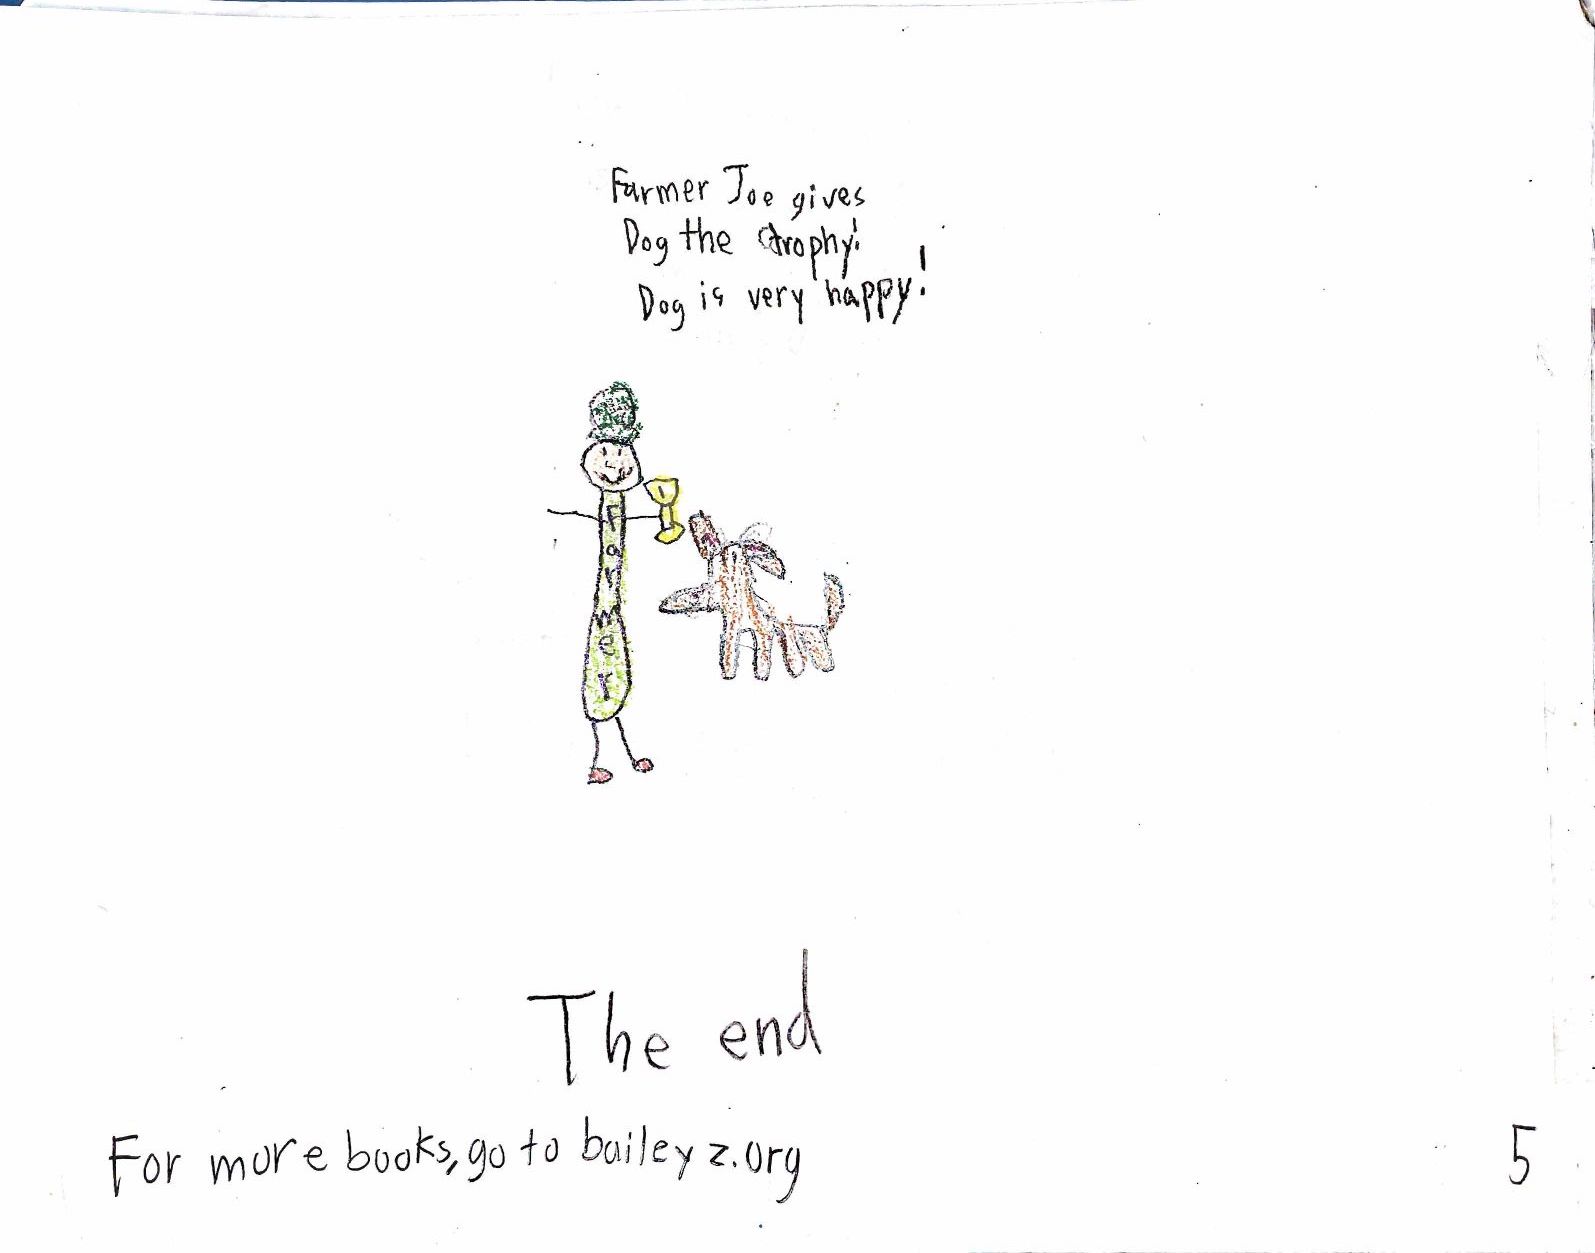 Farmer Joe gives
Dog the trophy!
Dog is very happy!
Farmer
The end
For more books, go to baileyz.org
5